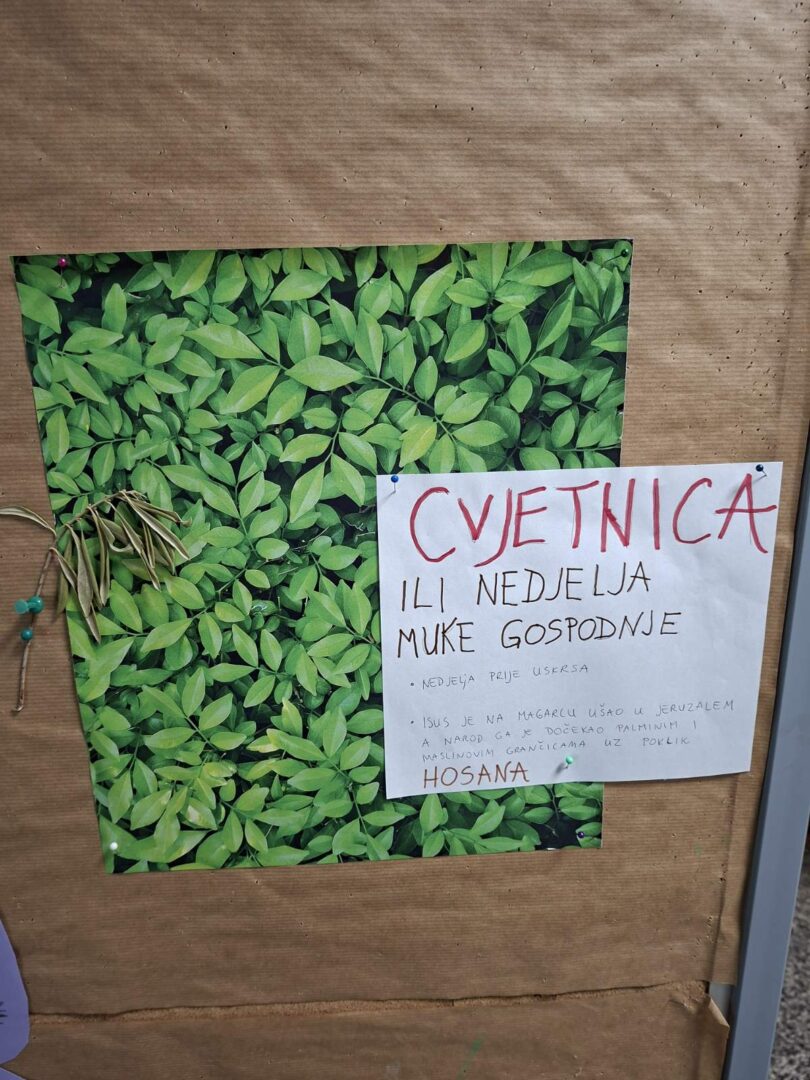 CVJETNICA
ILI NEDJELJA
MUKE GOSPODNJE
• NEDJELJA PRIJE USKRSA
• ISUS JE NA MAGARCU UŠAO U JERUZALEM
A NAROD GA JE DOČEKAO PALMINIM I
MASLINOVIM GRANČICAMA UZ POKLIK
HOSANA